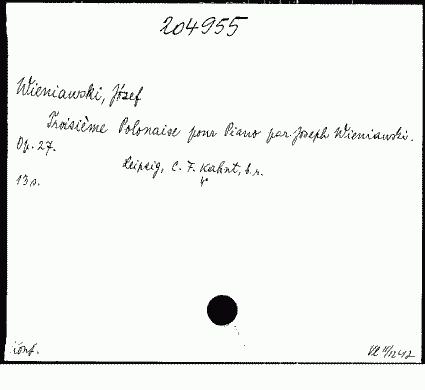 204955
Wieniawski, Józef
Troisième Polonaise pour Piano par Joseph Wieniawski.
Op. 27.
Leipzig, C. F. Kahnt, b.r.
4°
13 s.